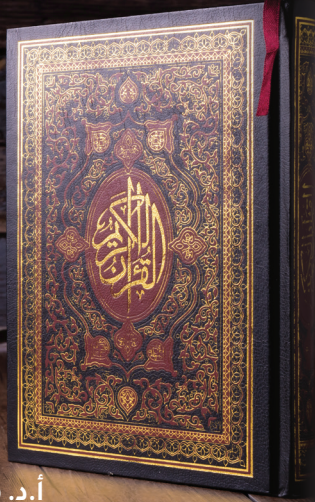 القرآن الكريم
أ.د.